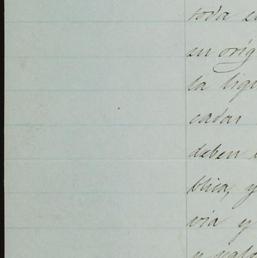 toda
su orig
la liqu
cadas
deben
blica, y
via y